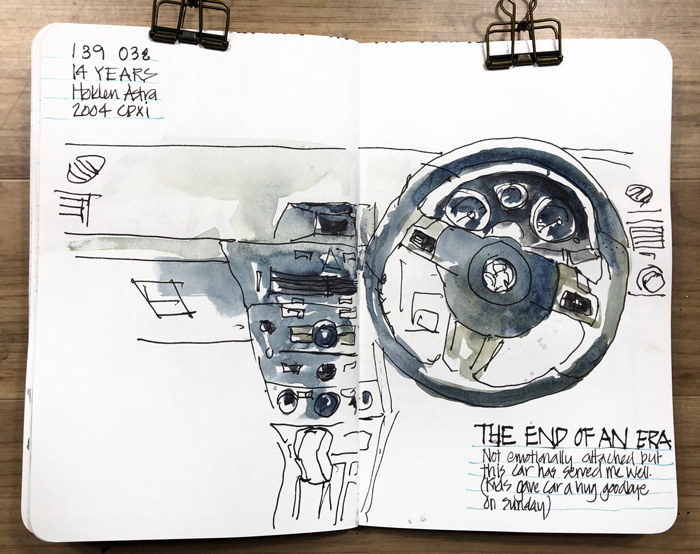 139 038
14 YEARS
Holden Astra
2004 CDXi
THE END OF AN ERA
Not emotionally attached but
this car has served me well.
(Kids gave car a hug goodbye
on Sunday)